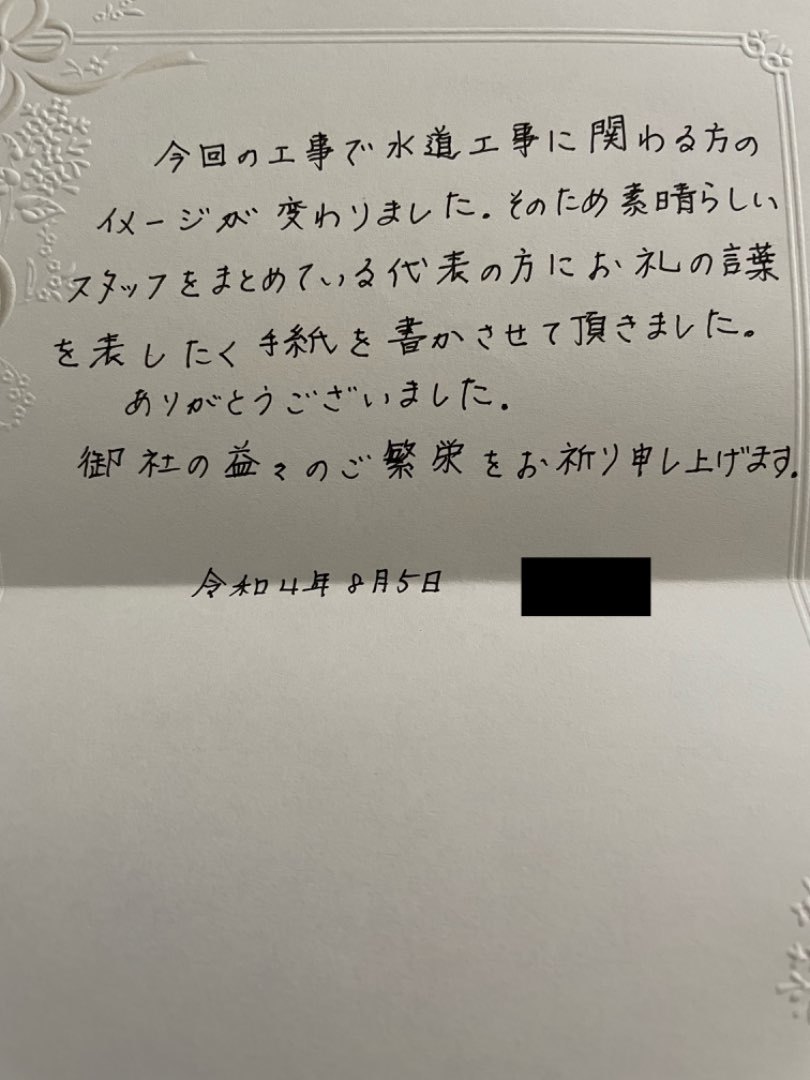 今回の工事で水道工事に関わる方の
イメージが変わりました。そのため素晴らしい
スタッフをまとめている代表の方にお礼の言葉
を表したく手紙を書かさせて頂きました。
ありがとうございました。
御社の益々のご繁栄をお祈り申し上げます。
令和4年8月5日